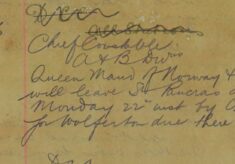 Chief Constable
A & B Divns
Queen Maud of Norway &
will leave St Pancras
Monday 22nd inst by
for Wolferton due there